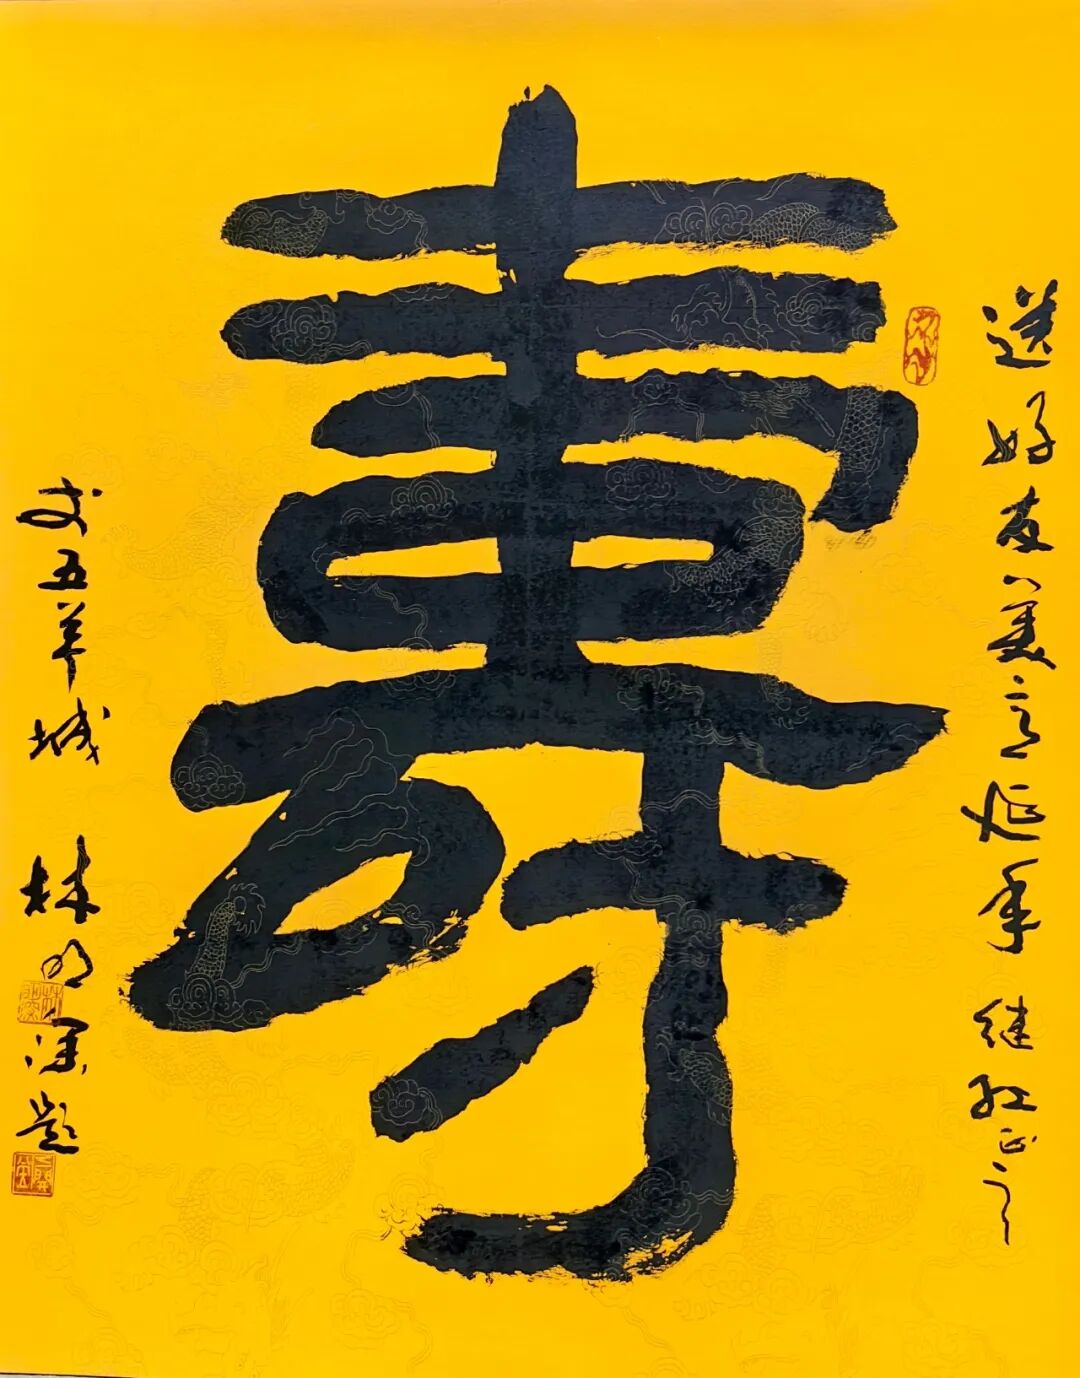 送好友美意延年 继红正之
壽
五羊城 林 深题